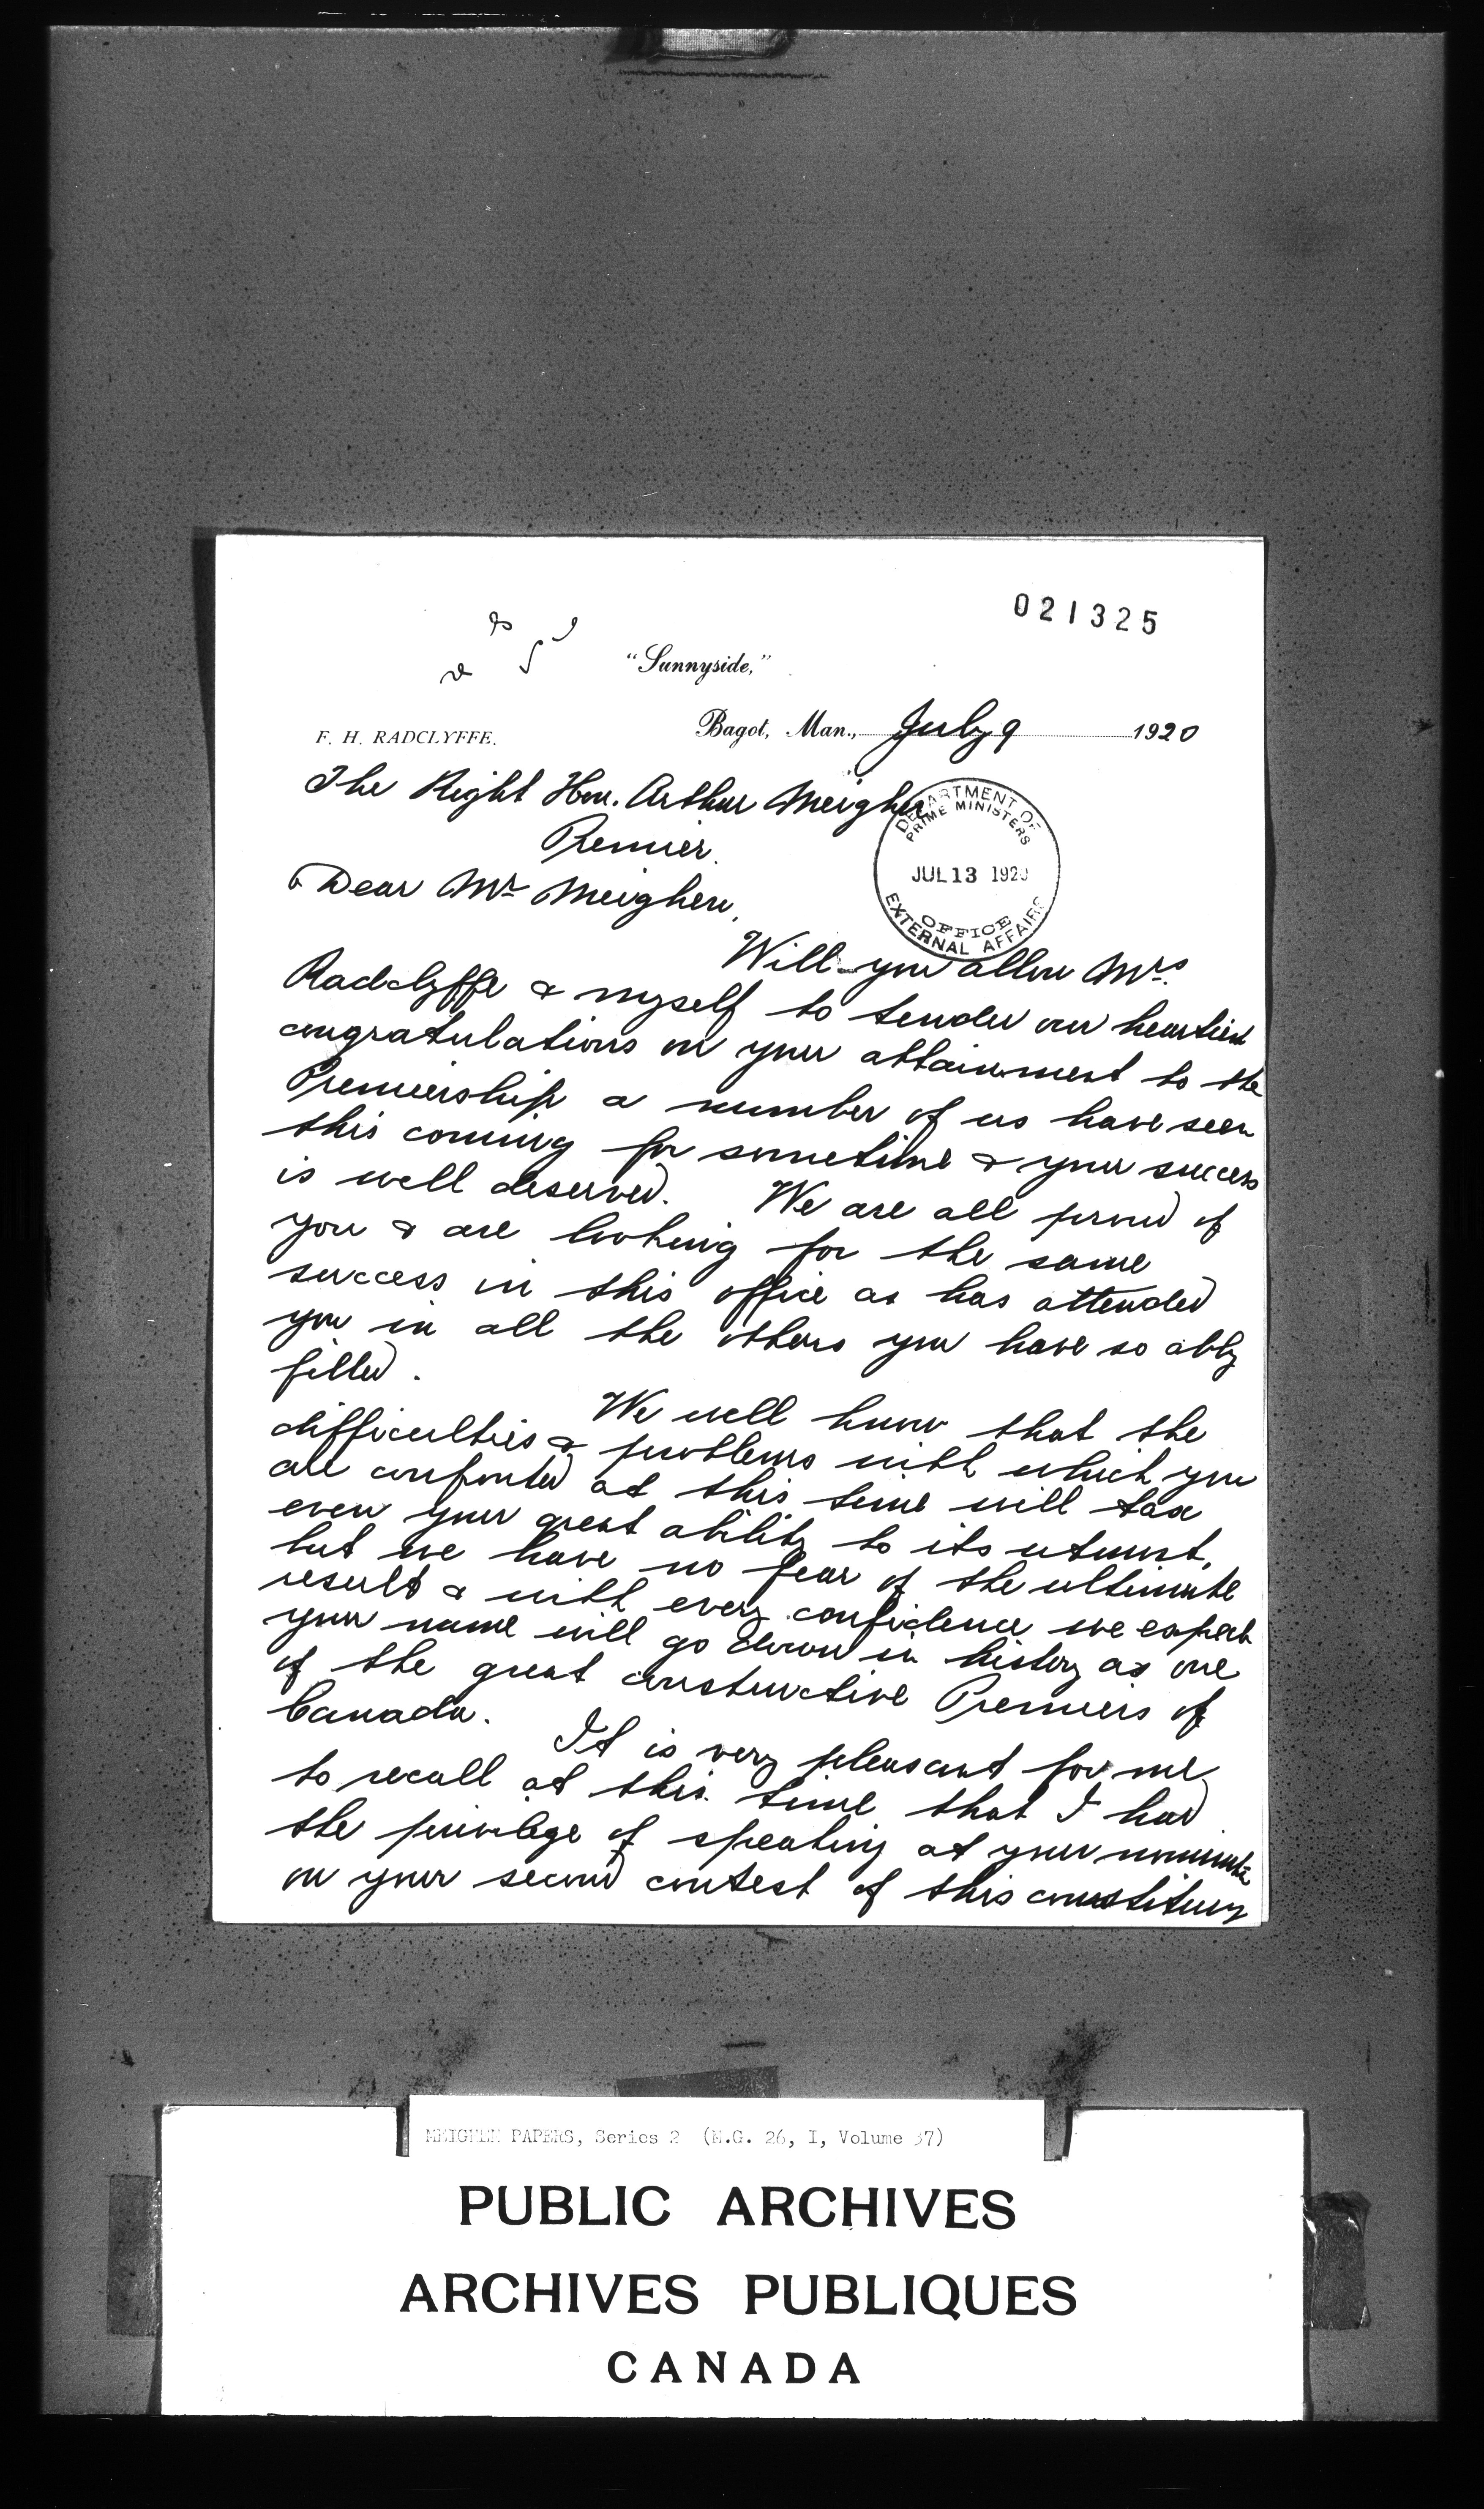 021325
"Sunnyside,"
F. H. RADCLYFFE.
Bagot, Man., July 9 1920
The Right Hon. Arthur Meighen
Premier.
DEPARTMENT OF
PRIME MINISTERS
JUL 13 1920
OFFICE
EXTERNAL AFFAIRS
Dear Mr Meighen,
Will you allow Mrs.
Radclyffe & myself to tender our heartiest
congratulations on your attainment to the
Premiership a number of us have seen
this coming for sometime & your success
is well deserved. We are all proud of
you & are looking for the same
success in this office as has attended
you in all the others you have so ably
filled.
We well know that the
difficulties & problems with which you
are confronted at this time will tax
even your great ability to its utmost,
but we have no fear of the ultimate
result & with every confidence we expect
your name will go down in history as one
of the great constructive Premiers of
Canada.
It is very pleasant for me
to recall at this time that I had
the privilege of speaking at your
on your second contest of this constituency
MEIGHEN PAPERS, Series 2 (M.G. 26, I, Volume 37)
PUBLIC ARCHIVES
ARCHIVES PUBLIQUES
CANADA